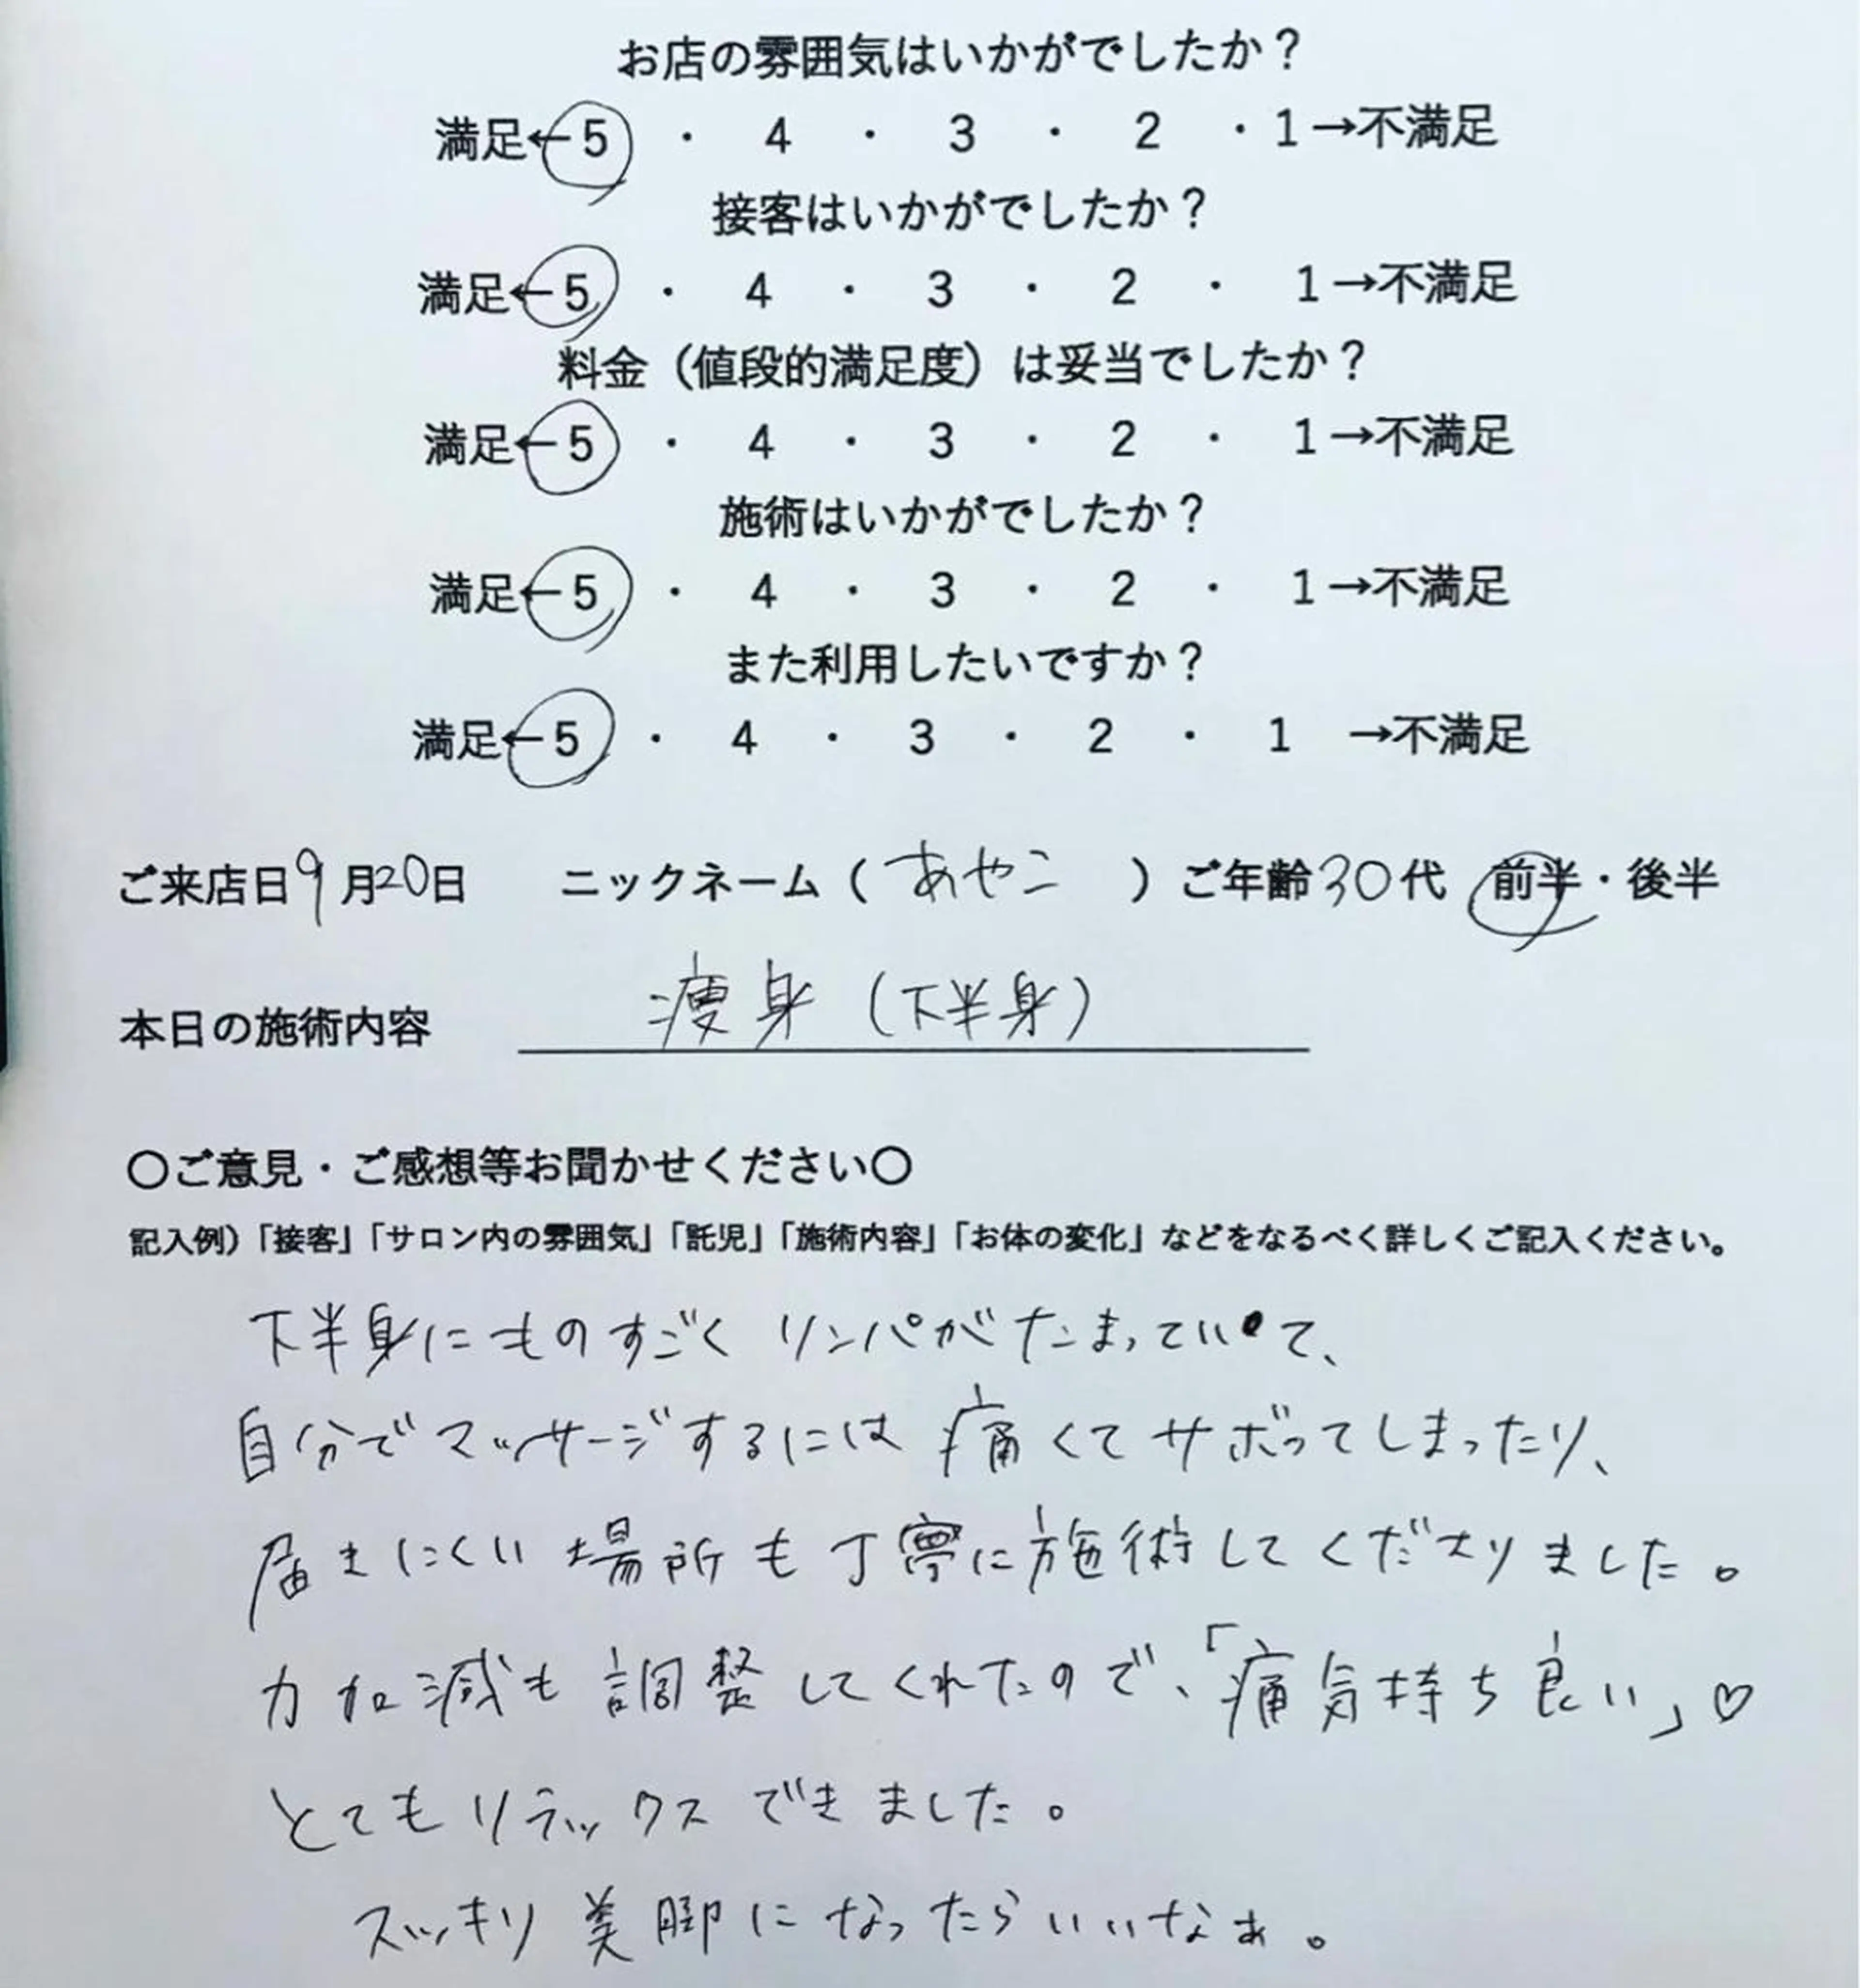 お店の雰囲気はいかがでしたか？
満足←5 ・ 4 ・ 3 ・ 2 ・ 1→不満足
接客はいかがでしたか？
満足←5 ・ 4 ・ 3 ・ 2 ・ 1→不満足
料金（値段的満足度）は妥当でしたか？
満足←5 ・ 4 ・ 3 ・ 2 ・ 1→不満足
施術はいかがでしたか？
満足←5 ・ 4 ・ 3 ・ 2 ・ 1→不満足
また利用したいですか？
満足←5 ・ 4 ・ 3 ・ 2 ・ 1 →不満足
ご来店日9月20日 ニックネーム（ あやこ ）ご年齢30代 前半・後半
本日の施術内容 痩身（下半身）
〇ご意見・ご感想等お聞かせください〇
記入例）「接客」「サロン内の雰囲気」「託児」「施術内容」「お体の変化」などをなるべく詳しくご記入ください。
下半身にものすごくリンパがたまっていて、
自分でマッサージするには痛くてサボってしまったり、
届きにくい場所も丁寧に施術してくださりました。
力加減も調整してくれたので、「痛気持ち良い」♡
とてもリラックスできました。
スッキリ美脚になったらいいなぁ。